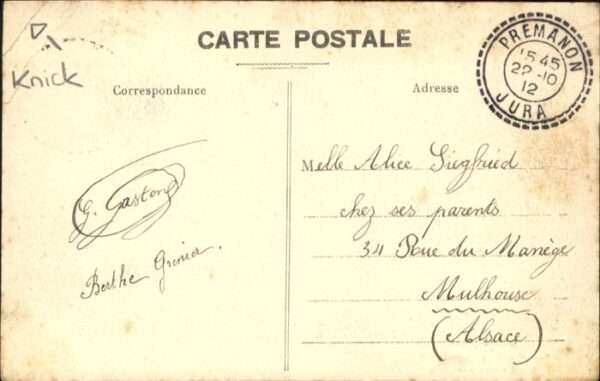 CARTE POSTALE
PREMANON
15 45
22-10
12
JURA
Knick
Correspondance
Adresse
G. Gaston
Berthe Grenier.
Melle Alice Siegfried
chez ses parents
34 Rue du Manège
Mulhouse
(Alsace)